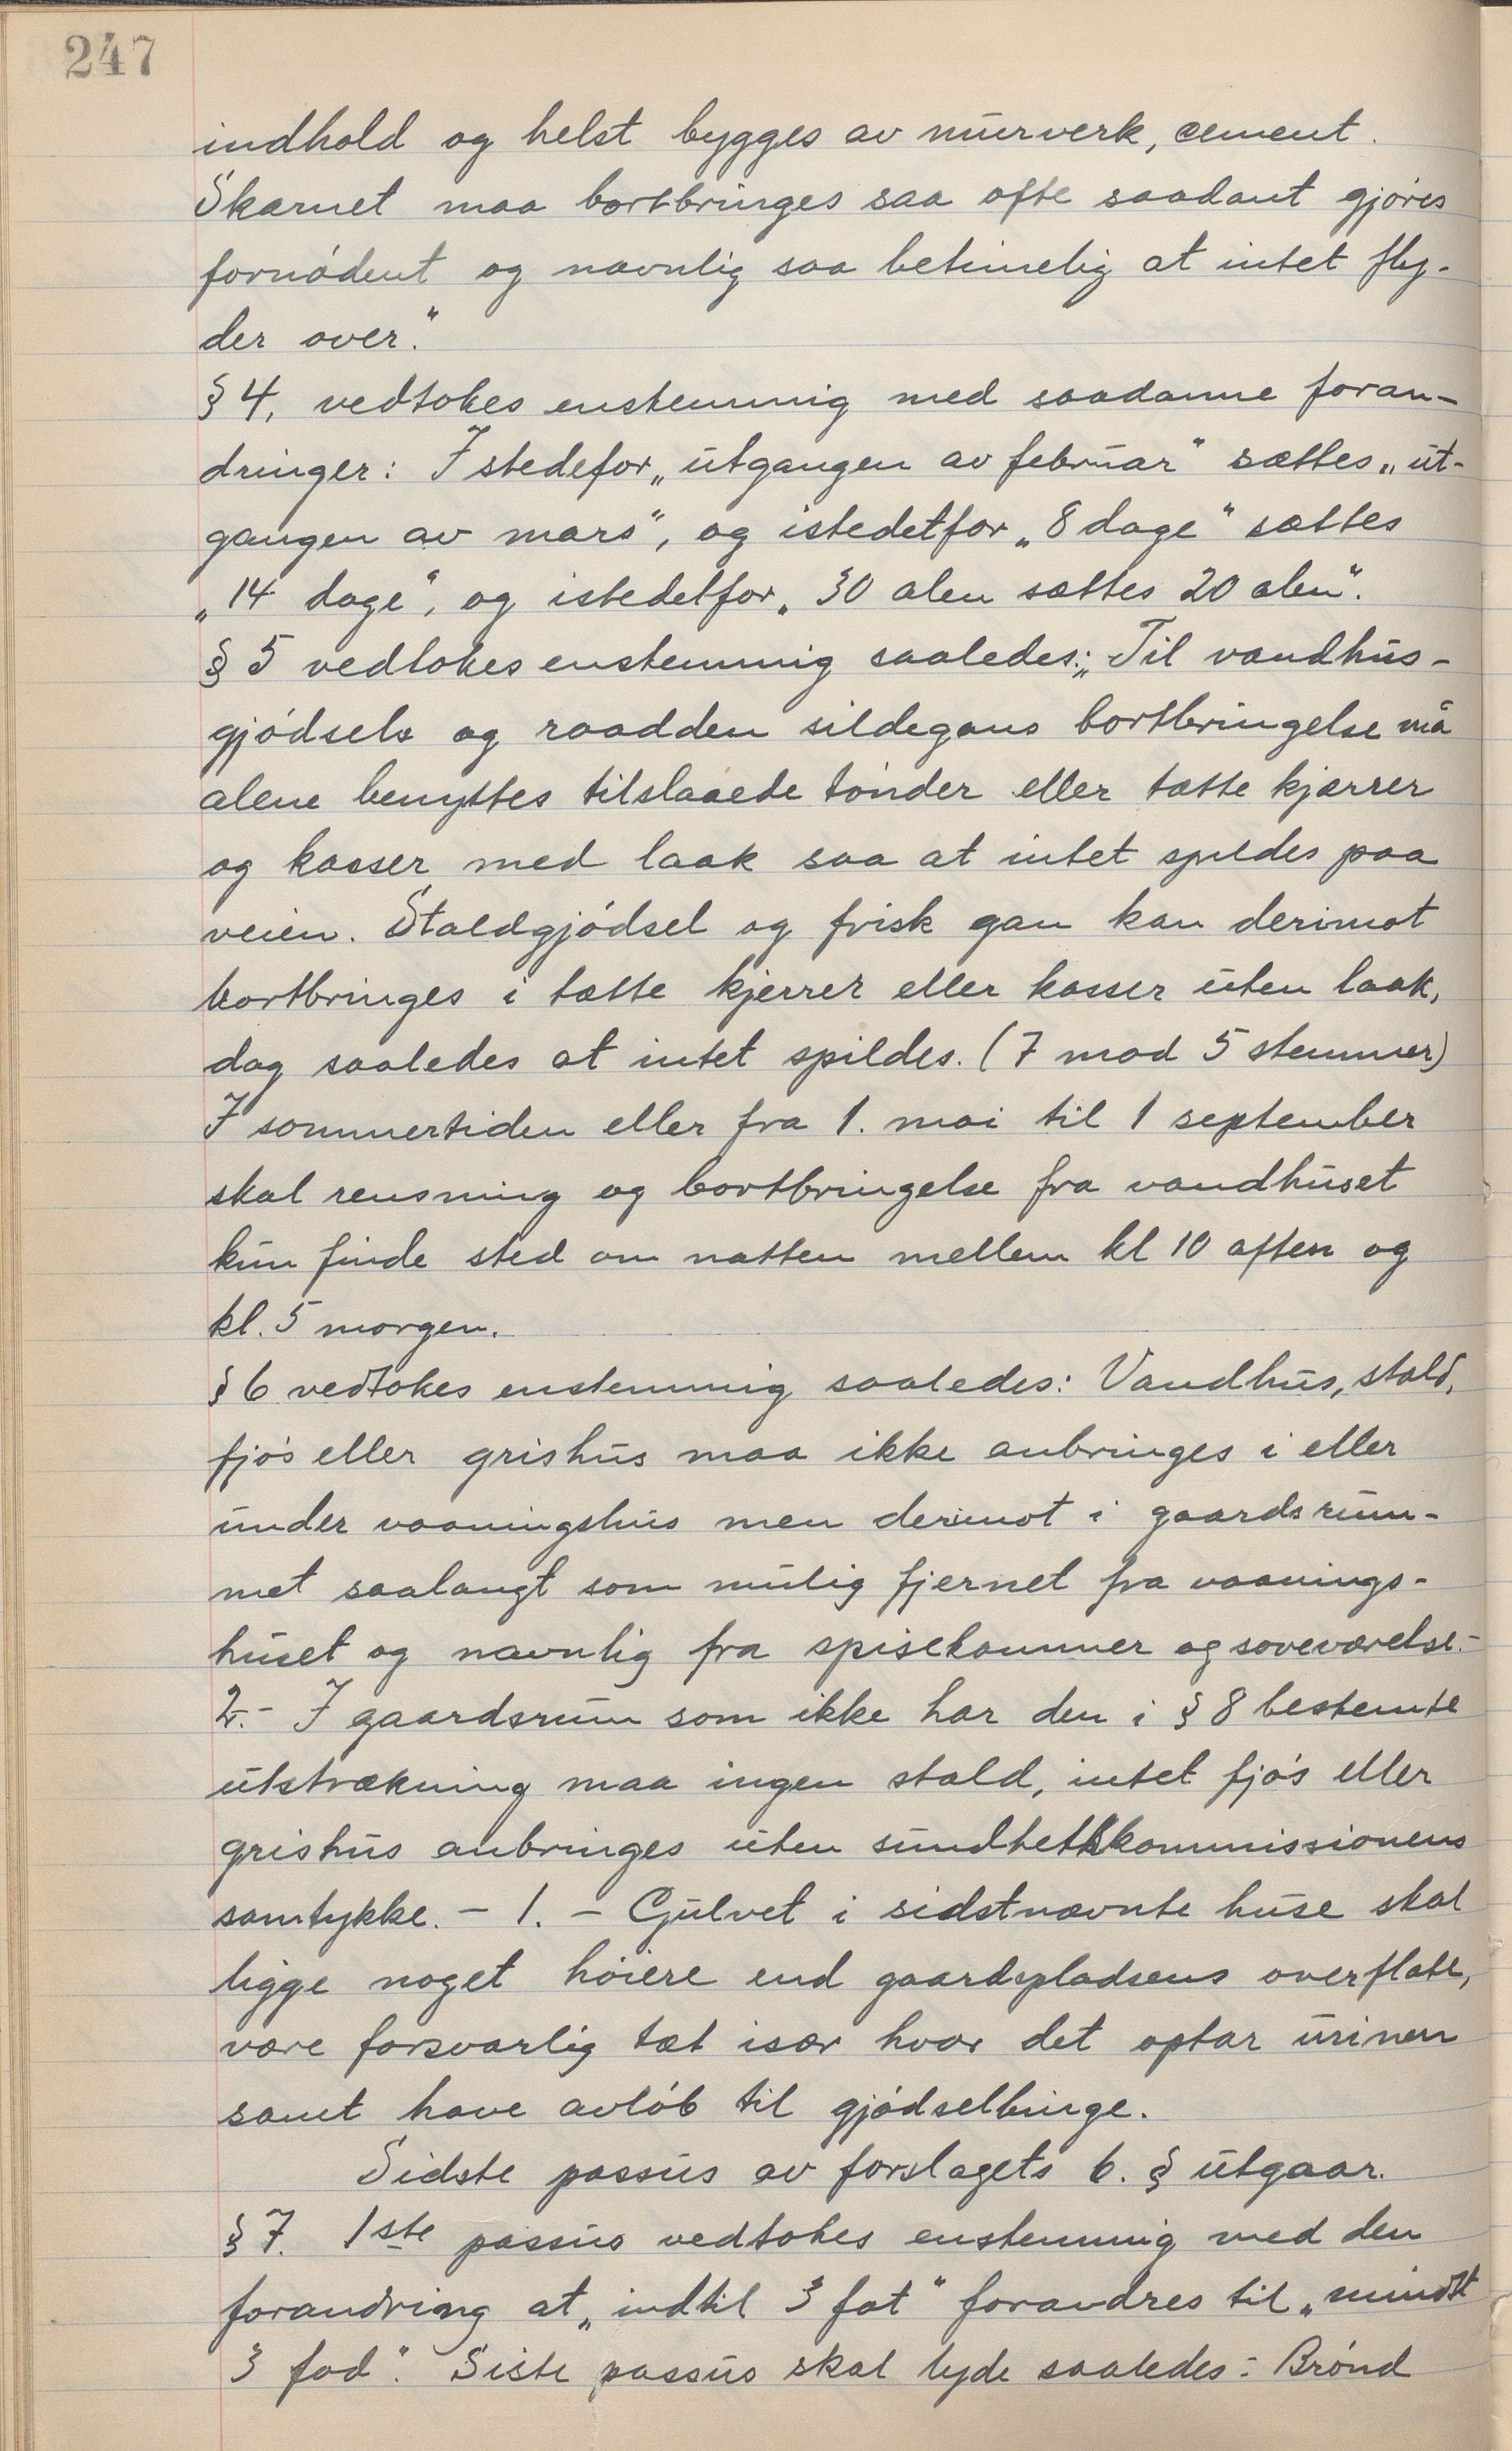 247
indhold og helst bygges av murverk, cement.
Skarnet maa bortbringes saa ofte saadant gjøres
fornødent og navnlig saa betimelig at intet fly-
der over."
§ 4, vedtokes enstemmig med saadanne foran-
dringer: I stedefor „utgangen av februar" sættes „ut-
gangen av mars", og istedetfor „8 dage" sættes
„14 dage", og istedetfor „30 alen sættes 20 alen".
§ 5 vedtokes enstemmig saaledes: „Til vandhus-
gjødsels og raadden sildegans bortbringelse må
alene benyttes tilslaaede tønder eller tætte kjærrer
og kasser med laak saa at intet spildes paa
veien. Staldgjødsel og frisk gan kan derimot
bortbringes i tætte kjerrer eller kasser uten laak,
dog saaledes at intet spildes. (7 mod 5 stemmer)
I sommertiden eller fra 1. mai til 1 september
skal rensning og bortbringelse fra vandhuset
kun finde sted om natten mellem kl 10 aften og
kl. 5 morgen.
§ 6 vedtokes enstemmig saaledes: Vandhus, stald,
fjøs eller grishus maa ikke anbringes i eller
under vaaningshus men derimot i gaardsrum-
met saalangt som mulig fjernet fra vaanings-
huset og navnlig fra spisekammer og soveværelse.-
2.- I gaardsrum som ikke har den i § 8 bestemte
utstrækning maa ingen stald, intet fjøs eller
grishus anbringes uten sundhetskommissionens
samtykke. - 1. - Gulvet i sidstnævnte huse skal
ligge noget høiere end gaardspladsens overflate,
være forsvarlig tæt især hvor det optar urinen
samt have avløb til gjødselbinge.
Sidste passus av forslagets 6. § utgaar.
§ 7. 1ste passus vedtokes enstemmig med den
forandring at „indtil 3 fot" forandres til „mindst
3 fod". Siste passus skal lyde saaledes: Brønd